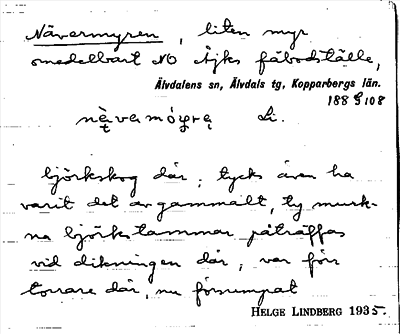 Nävermyren, liten myr
omedelbart NO Äjks fäbodställe,
Älvdalens sn, Älvdals tg, Kopparbergs län.
188 G 108
Li.
björkskog där; tycks även ha
varit det av gammalt, ty murk-
na björkstammar påträffas
vid dikningen där, var förr
torrare där, nu försumpat
HELGE LINDBERG 1935.